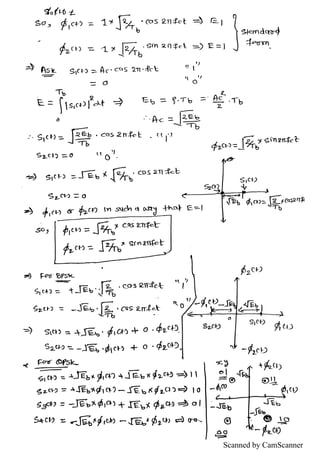 So, ϕ₁(t) = 1 × √2/Tb · cos 2πfct ⇒ E=1
ϕ₂(t) = 1 × √2/Tb · sin 2πfct ⇒ E=1
Standard form.
⇒ ASK S₁(t) = Ac · cos 2πfct "1"
= 0 "0"
E = ∫ |S₁(t)|² dt ⇒ Eb = P·Tb = Ac²/2 · Tb
Tb
0
∴ Ac = √2Eb/Tb
∴ S₁(t) = √2Eb/Tb · cos 2πfct . "1"
S₂(t) = 0 "0".
ϕ₂(t) = √2/Tb × sin 2πfct
⇒ S₁(t) = √Eb × √2/Tb · cos 2πfct
S₂(t) = 0
S₂(t) S₁(t)
0 √Eb ϕ₁(t) = √2/Tb × cos 2πf
⇒ ϕ₁(t) or ϕ₂(t) in such a way that E=1
So, ϕ₁(t) = √2/Tb × cos 2πfct
ϕ₂(t) = √2/Tb × sin 2πfct
⇒ For BPSK
S₁(t) = +√Eb · √2/Tb · cos 2πfct "1"
S₂(t) = -√Eb · √2/Tb · cos 2πfct "0"
ϕ₂(t)
-ϕ₁(t) -√Eb √Eb
S₂(t) 0 S₁(t) ϕ₁(t)
-ϕ₂(t)
⇒ S₁(t) = +√Eb · ϕ₁(t) + 0 · ϕ₂(t)
S₂(t) = -√Eb · ϕ₁(t) + 0 · ϕ₂(t)
* For QPSK
xy
S₁(t) = +√Eb × ϕ₁(t) + √Eb × ϕ₂(t) ⇒ 11
S₂(t) = +√Eb × ϕ₁(t) - √Eb × ϕ₂(t) ⇒ 10
S₃(t) = -√Eb × ϕ₁(t) + √Eb × ϕ₂(t) ⇒ 01
S₄(t) = -√Eb × ϕ₁(t) - √Eb × ϕ₂(t) ⇒ 00
+ϕ₂(t)
01 √Eb 11
ϕ₁(t)
-√Eb √Eb
-√Eb
00 10
-ϕ₂(t)
Scanned by CamScanner